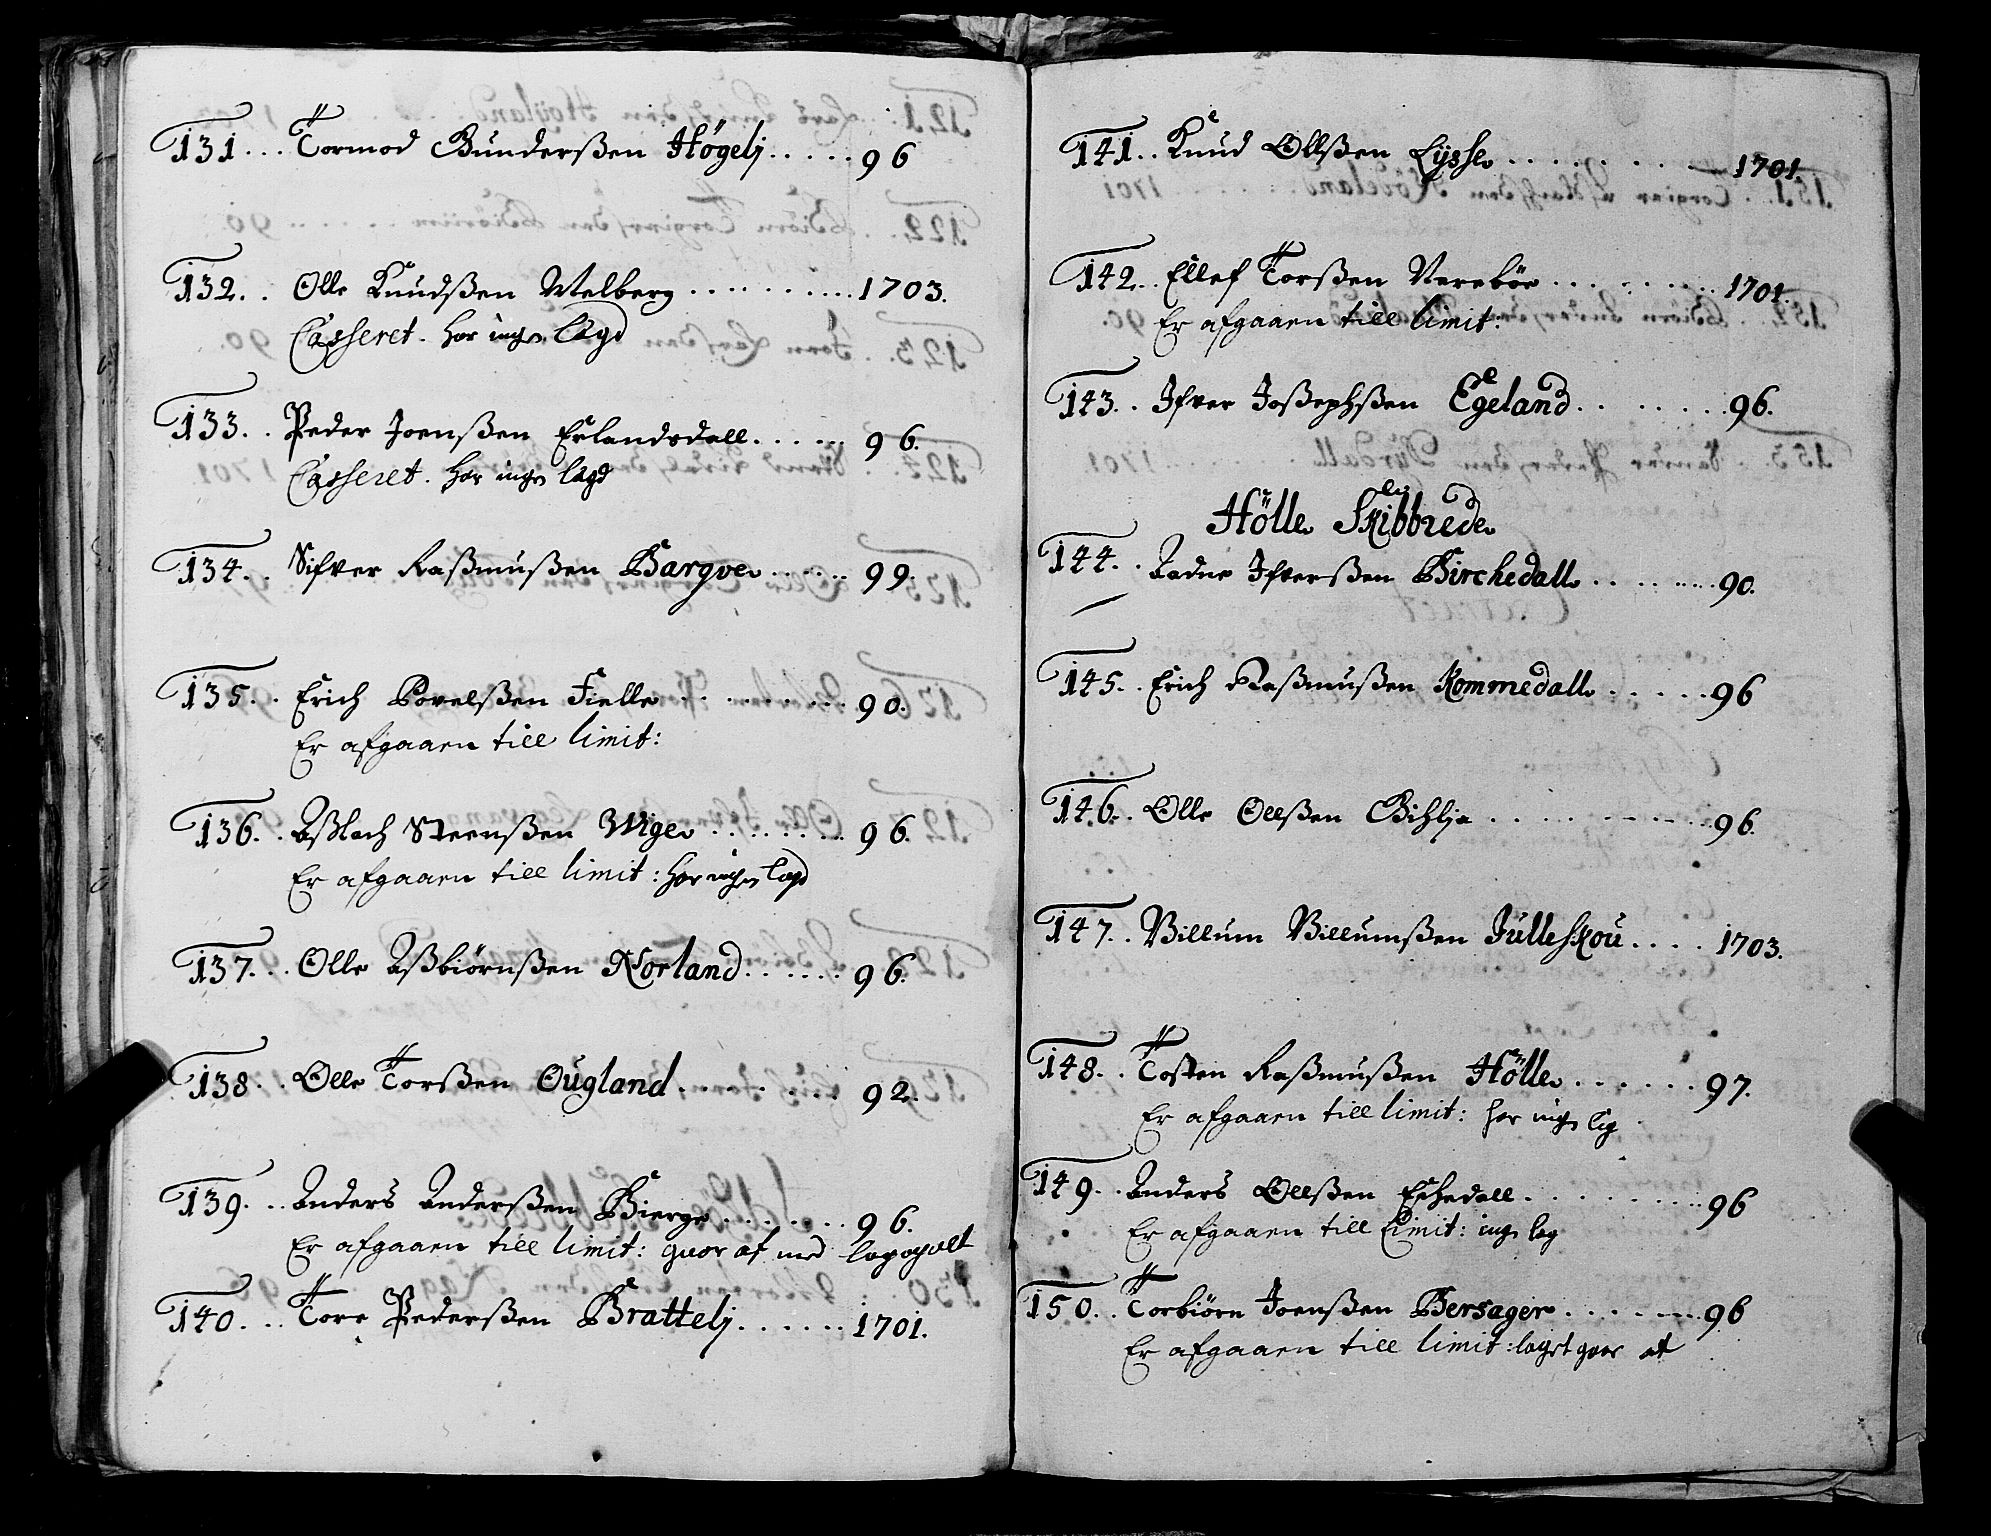 131... Tormod Gunderßen Høgelj..... 96
132.. Olle Knudßen Melberg .......... 1703.
Casseret. har ingen lagd
133.. Peder Joenßen Erlandsdall...... 96.
Casseret. har ingen lagd
134.. Sifver Raßmußen Bargve...... 99.
135.. Erich Povelßen Fielle ......... 90.
Er afgaaen till limit:
136.. Aßlach Steenßen Wige........ 96.
Er afgaaen till limit: har ingen lagd
137... Olle Aßbiørnßen Norland...... 96.
138.. Olle Torßen Ougland........ 92.
139... Anders Anderßen Bierge........ 96.
Er afgaaen till limit: af med
140... Tore Pederßen Brattelj...... 1701.
141.. Knud Ollßen Lysse.......... 1701.
142.. Ellef Torßen Nerebøe.......... 1701.
Er afgaaen till limit:
143.. Ifver Joßephßen Egeland....... 96.
Hölle Skibbrede
144.. Adne Ifverßen Birchedall....... 90.
145.. Erich Raßmußen Kommedall..... 96
146.. Olle Ollßen Bihlja ........ 96.
147.. Villum Villumßen Julleskou.... 1703.
148.. Tosten Raßmußen Hölle...... 97.
Er afgaaen till limit: har ingen
149.. Anders Ollßen Eshedall......... 96
Er afgaaen till Limit: ingen
150.. Torbiørn Joenßen Bersager....... 96
Er afgaaen till limit: